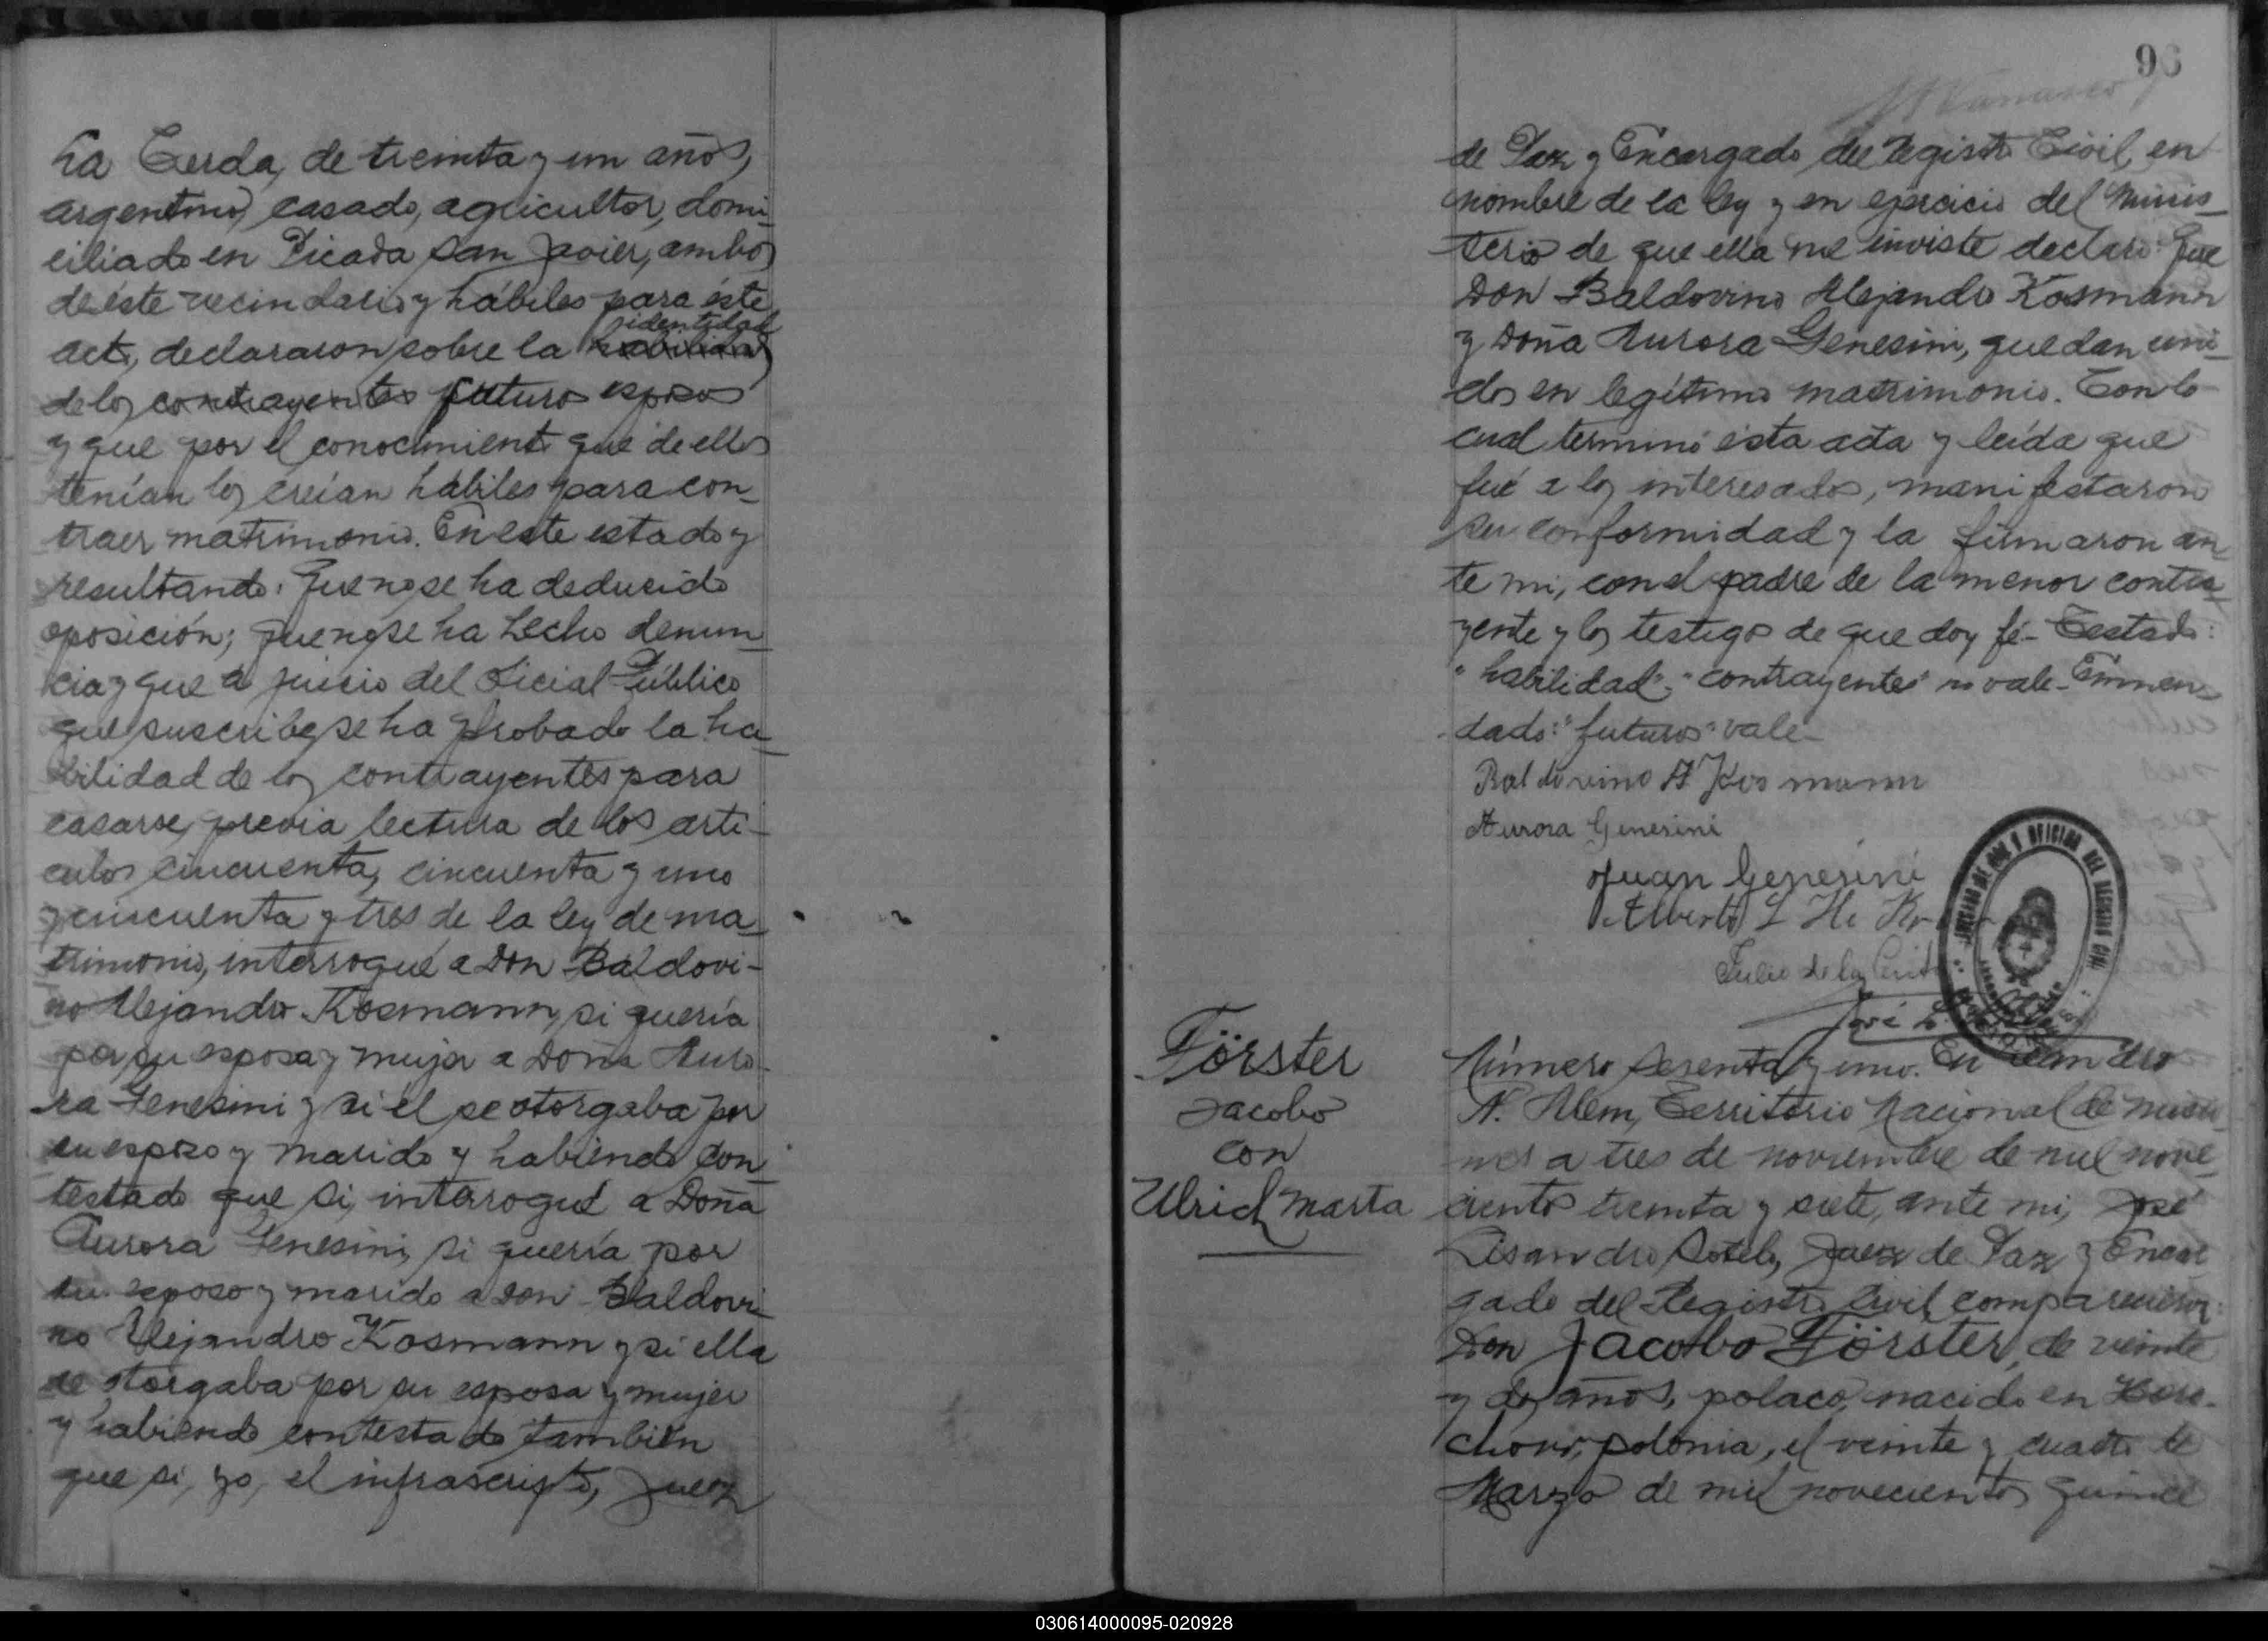 La Cerda, de treinta y un años,
argentino, casado, agricultor, domi-
ciliado en Picada San Javier, ambos
de éste vecindario y hábiles para éste
identidad
acto, declararon sobre la habilidad
de los contrayentes futuros esposos
y que por el conocimiento que de ellos
tenían los creían hábiles para con-
traer matrimonio. En este estado y
resultando: Que no se ha deducido
oposición; que no se ha hecho denun-
cia y que a juicio del Oficial Público
que suscribe, se ha probado la ha-
bilidad de los contrayentes para
casarse, previa lectura de los artí-
culos cincuenta, cincuenta y uno
y cincuenta y tres de la ley de ma-
trimonio, interrogué a Don Baldovi-
no Alejandro Kosmann, si quería
por su esposa y mujer a Doña Auro-
ra Genesini y si él se otorgaba por
su esposo y marido y habiendo con-
testado que si, interrogué a Doña
Aurora Genesini, si quería por
su esposo y marido a Don Baldovi-
no Alejandro Kosmann y si ella
se otorgaba por su esposa y mujer
y habiendo contestado también
que si, yo, el infrascripto, Juez
96
de Paz y Encargado del Registro Civil, en
nombre de la ley y en ejercicio del Minis-
terio de que ella me inviste declaro: Que
Don Baldovino Alejandro Kosmann
y Doña Aurora Genesini, quedan uni-
dos en legítimo matrimonio. Con lo
cual terminó ésta acta y leída que
fué a los interesados, manifestaron
su conformidad y la firmaron an-
te mi, con el padre de la menor contra-
yente y los testigos de que doy fé- Testado:
"habilidad"-"contrayentes" no vale- Enmen-
dado: "futuros" vale-
Baldovino A Kosmann
Aurora Genesini
Juan Genesini
Alberto L
Julio de la
José L.
JUZGADO DE PAZ Y OFICINA DEL REGISTRO CIVIL
Förster
Jacobo
con
Ulrich Marta
Número sesenta y uno. En Leandro
N. Alem, Territorio Nacional de Misio-
nes a tres de noviembre de mil nove-
cientos treinta y siete, ante mi, José
Lisandro Sotelo, Juez de Paz y Encar-
gado del Registro Civil comparecieron:
Don Jacobo Förster, de veinte
y dos años, polaco, nacido en
Polonia, el veinte y cuatro de
Marzo de mil novecientos quince
030614000095-020928